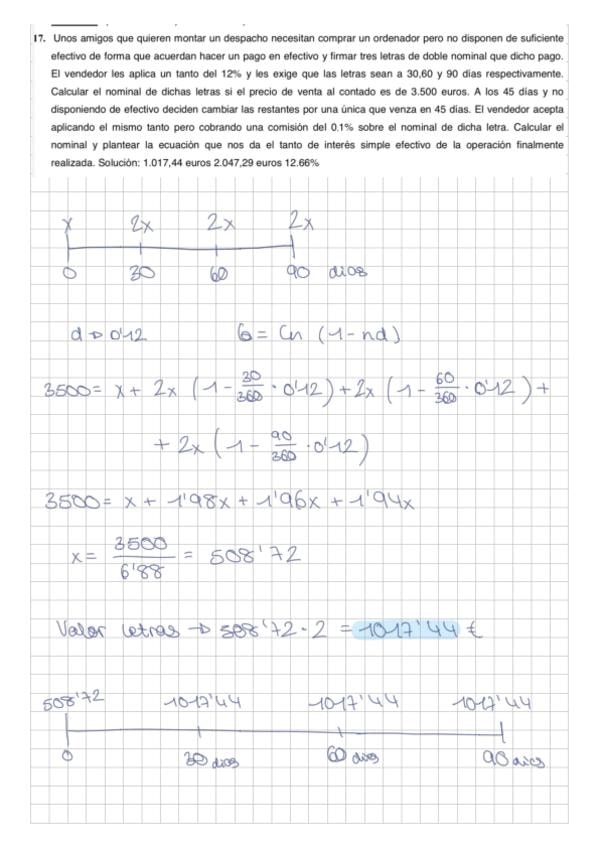 17. Unos amigos que quieren montar un despacho necesitan comprar un ordenador pero no disponen de suficiente
efectivo de forma que acuerdan hacer un pago en efectivo y firmar tres letras de doble nominal que dicho pago.
El vendedor les aplica un tanto del 12% y les exige que las letras sean a 30,60 y 90 días respectivamente.
Calcular el nominal de dichas letras si el precio de venta al contado es de 3.500 euros. A los 45 días y no
disponiendo de efectivo deciden cambiar las restantes por una única que venza en 45 días. El vendedor acepta
aplicando el mismo tanto pero cobrando una comisión del 0,1% sobre el nominal de dicha letra. Calcular el
nominal y plantear la ecuación que nos da el tanto de interés simple efectivo de la operación finalmente
realizada. Solución: 1.017,44 euros 2.047,29 euros 12.66%
x 2x 2x 2x
0 30 60 90 dias
d → 0'12 Co = Cn (1 - nd)
3500 = x + 2x (1 - 30/360 · 0'12) + 2x (1 - 60/360 · 0'12) +
+ 2x (1 - 90/360 · 0'12)
3500 = x + 1'98x + 1'96x + 1'94x
x = 3500/6'88 = 508'72
Valor letras → 508'72 · 2 = 1017'44 €
508'72 1017'44 1017'44 1017'44
0 30 dias 60 dias 90 dias